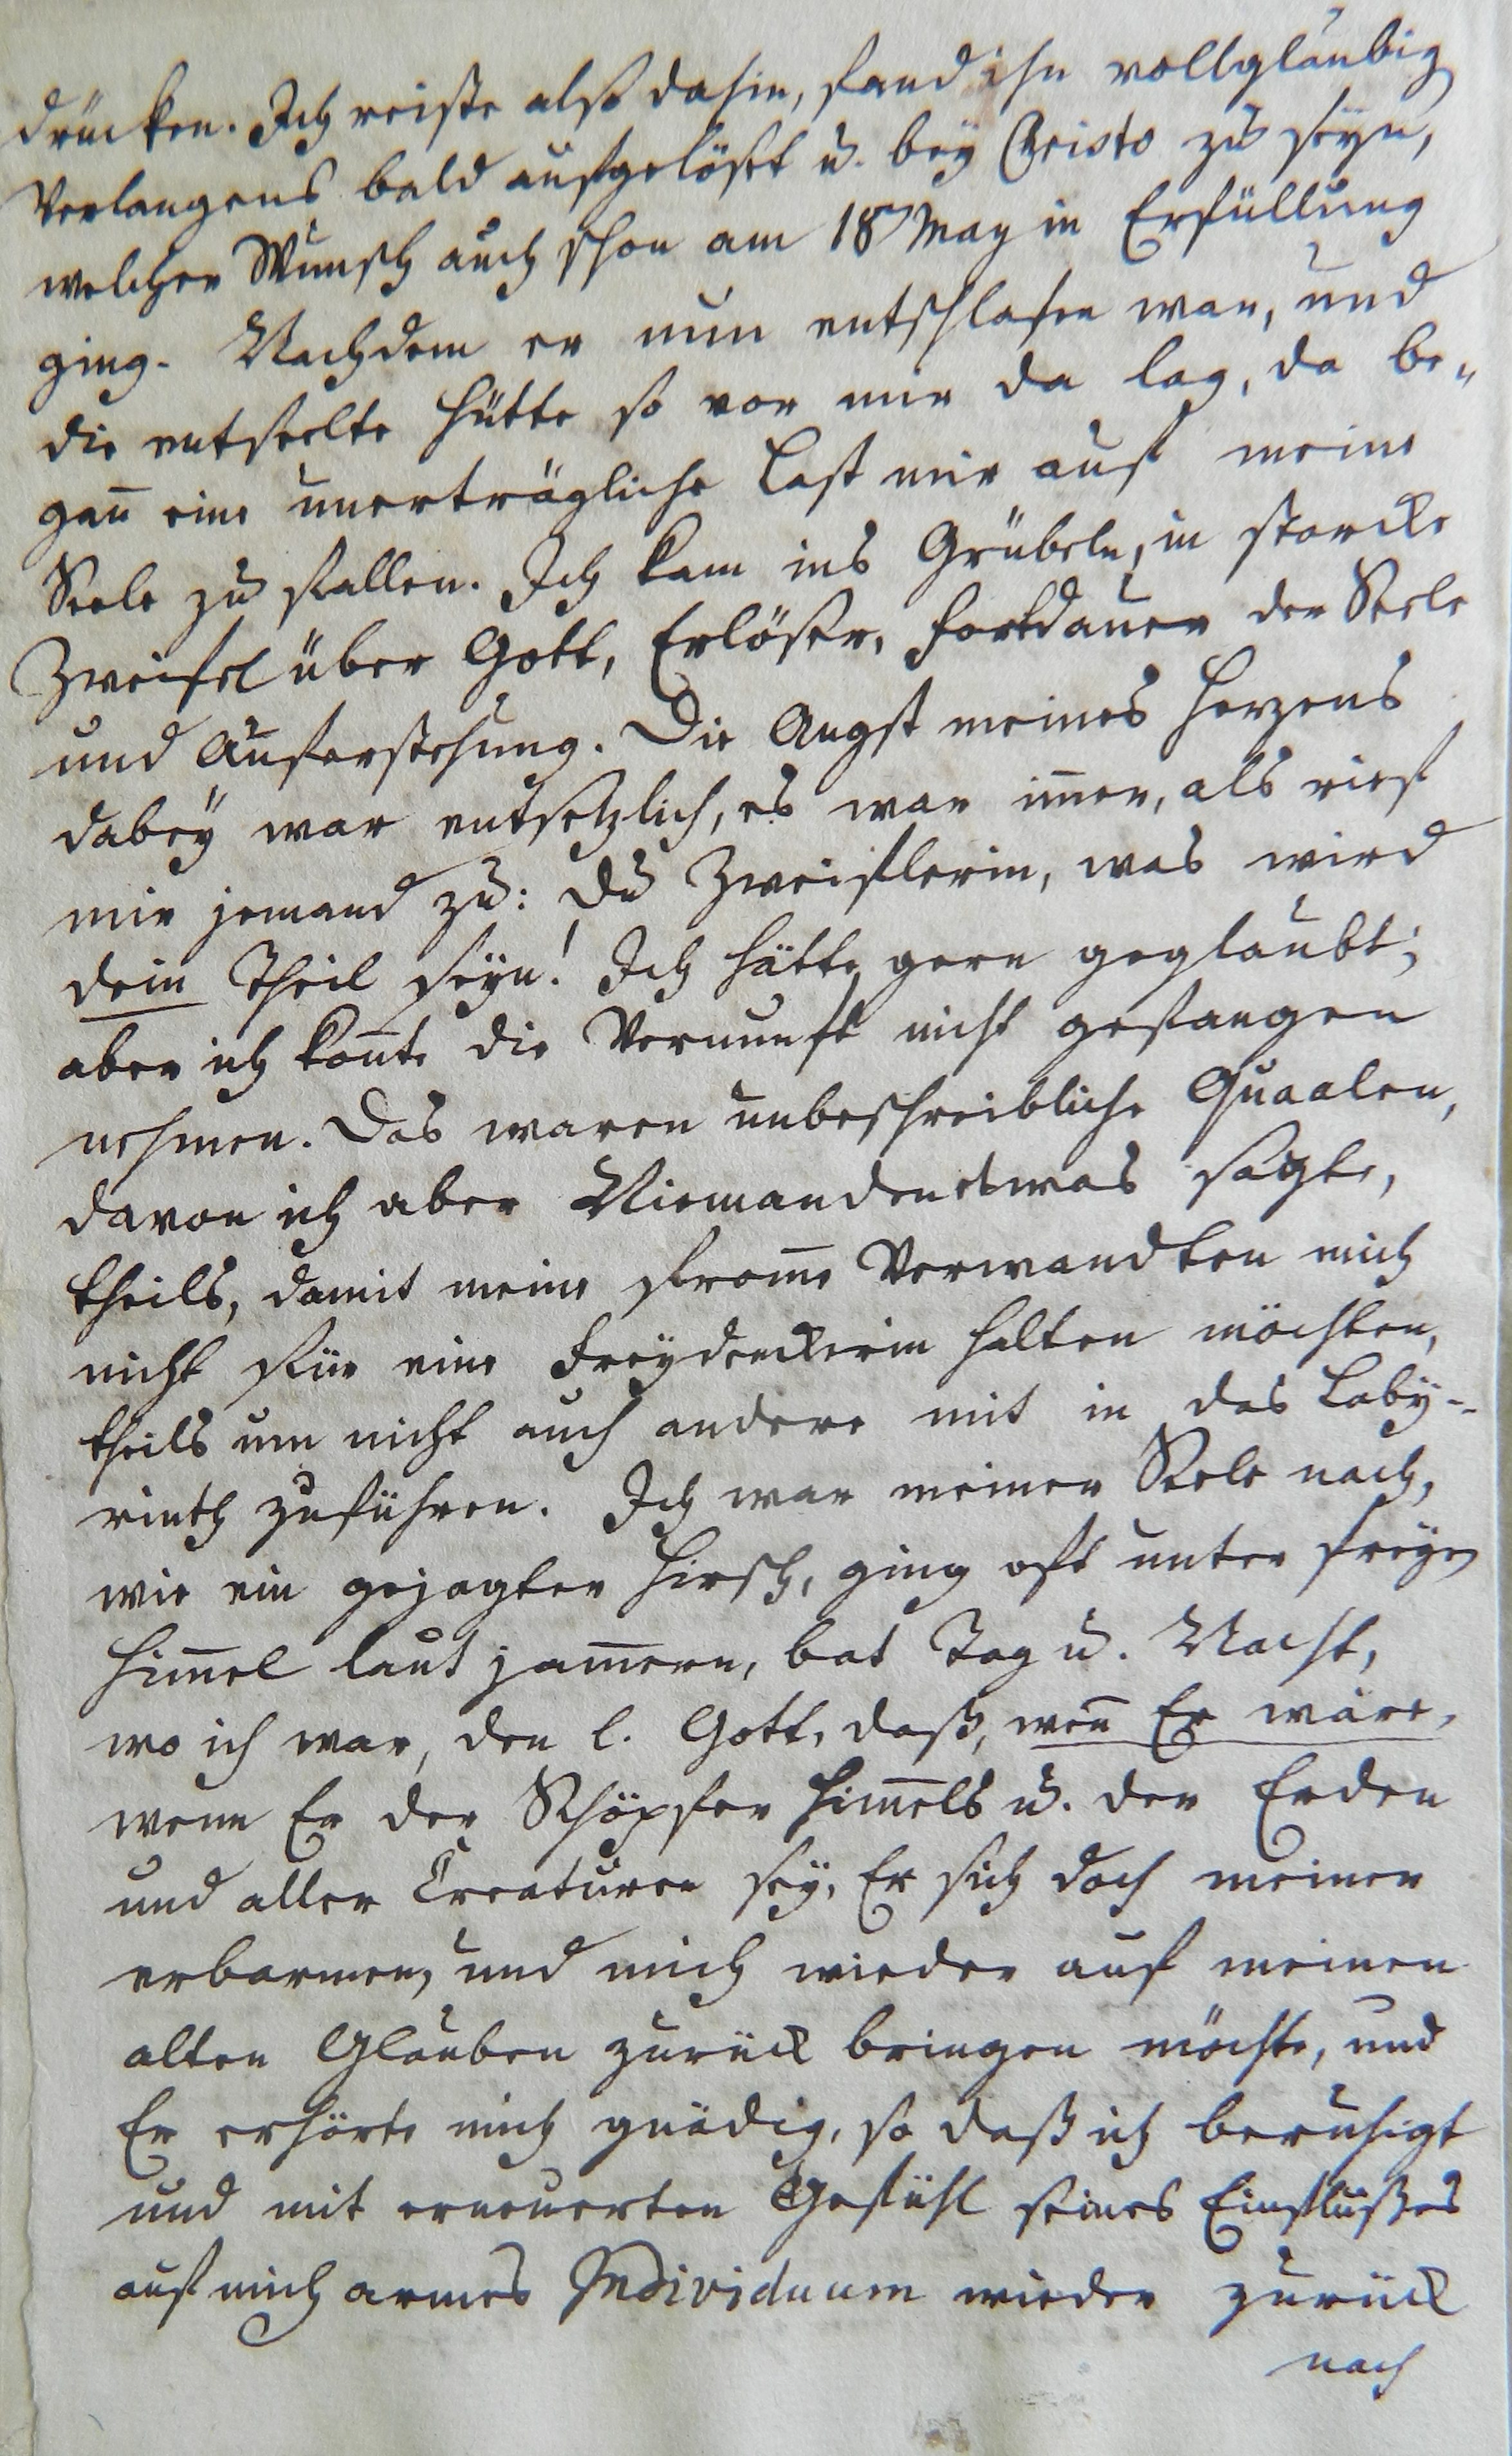 drücken. Ich reiste also dahin, fand ihn vollgläubig
Verlangens bald aufgelöset u. bey Christo zu seyn,
welcher Wunsch auch schon am 18 May in Erfüllung
ging. Nachdem er nun entschlafen war, und
die entseelte Hütte so vor mir da lag, da be„
gan̄ eine unerträgliche Last mir auf meine
Seele zu fallen. Ich kam ins Grübeln, in starcke
Zweifel über Gott, Erlöser, Fortdauer der Seele
und Auferstehung. Die Angst meines Herzens
dabeÿ war entsetzlich, es war im̄er, als rief
mir jemand zu: Du Zweiflerin, was wird
dein Theil seyn! Ich hätte gern geglaubt;
aber ich kon̄te die Vernunft nicht gefangen
nehmen. Das waren unbeschreibliche Quaalen,
davon ich aber Niemanden etwas sagte,
theils, damit meine from̄e Verwandten mich
nicht für eine Freÿdenckerin halten möchten,
theils um nicht auch andere mit in das Labÿ-
rinth zuführen. Ich war meiner Seele nach,
wie ein gejagter Hirsch, ging oft unter freÿen
Him̄el laut jam̄ern, bat Tag u. Nacht,
wo ich war, den l. Gott, daß, wen̄ Er wäre,
wenn Er der Schöpfer Him̄els u. der Erden
und aller Creaturen seÿ, Er sich doch meiner
erbarmen, und mich wieder auf meinen
alten Glauben zurück bringen möchte, und
Er erhörte mich gnädig, so daß ich beruhigt
und mit erneuerten Gefühl seines Einflußes
auf mich armes Individuum wieder zurück
nach